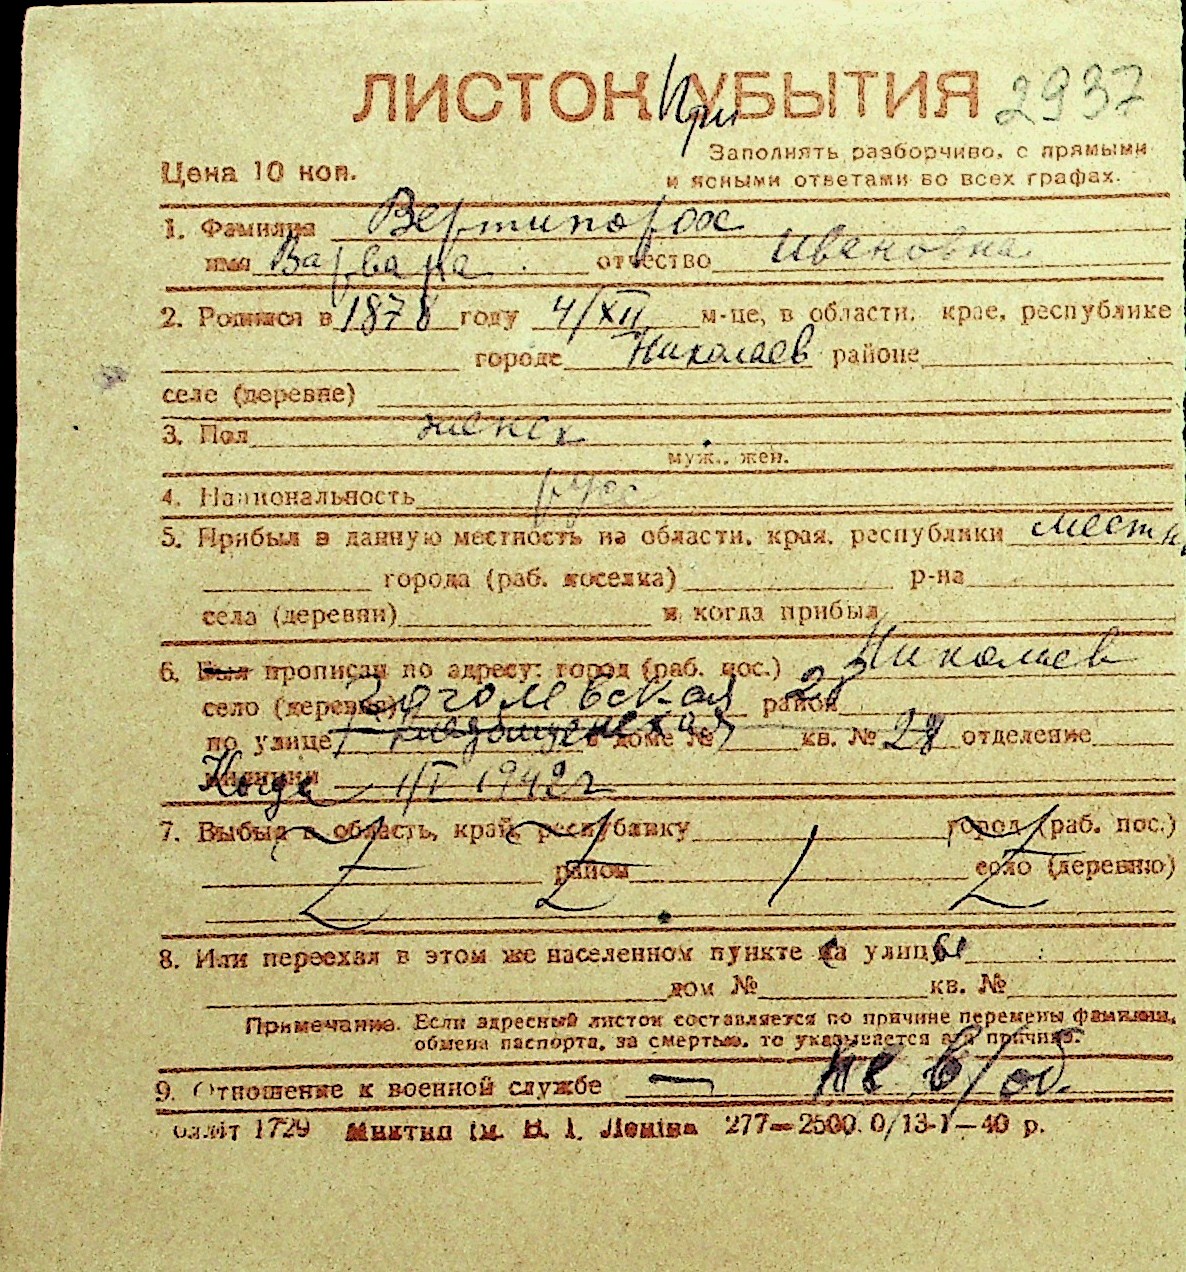 ЛИСТОК При УБЫТИЯ 2937
Цена 10 коп.
Заполнять разборчиво, с прямыми
и ясными ответами во всех графах.
1. Фамилия Вертипорох
имя Варвара отчество Ивановна
2. Родился в 1878 году 4/XII м-це, в области, крае, республике
городе Николаев районе
селе (деревне)
3. Пол женск
муж., жен.
4. Национальность рус
5. Прибыл в данную местность из области, края, республики местн.
города (раб. поселка) р-на
села (деревни) и когда прибыл
6. Был прописан по адресу: город (раб. пос.) Николаев
село (деревня) 28 район
по улице в доме № кв. № 28 отделение
милиции Когда 1942 г
7. Выбыл в область, край, республику город (раб. пос.)
район село (деревню)
8. Или переехал в этом же населенном пункте на улицы
дом № кв. №
Примечание. Если адресный листок составляется по причине перемены фамилии,
обмена паспорта, за смертью, то указывается эта причина.
9. Отношение к военной службе — не в/об.
облліт 1729 Миктип ім. В. І. Леніна 277—2500. 0/13-I—40 р.